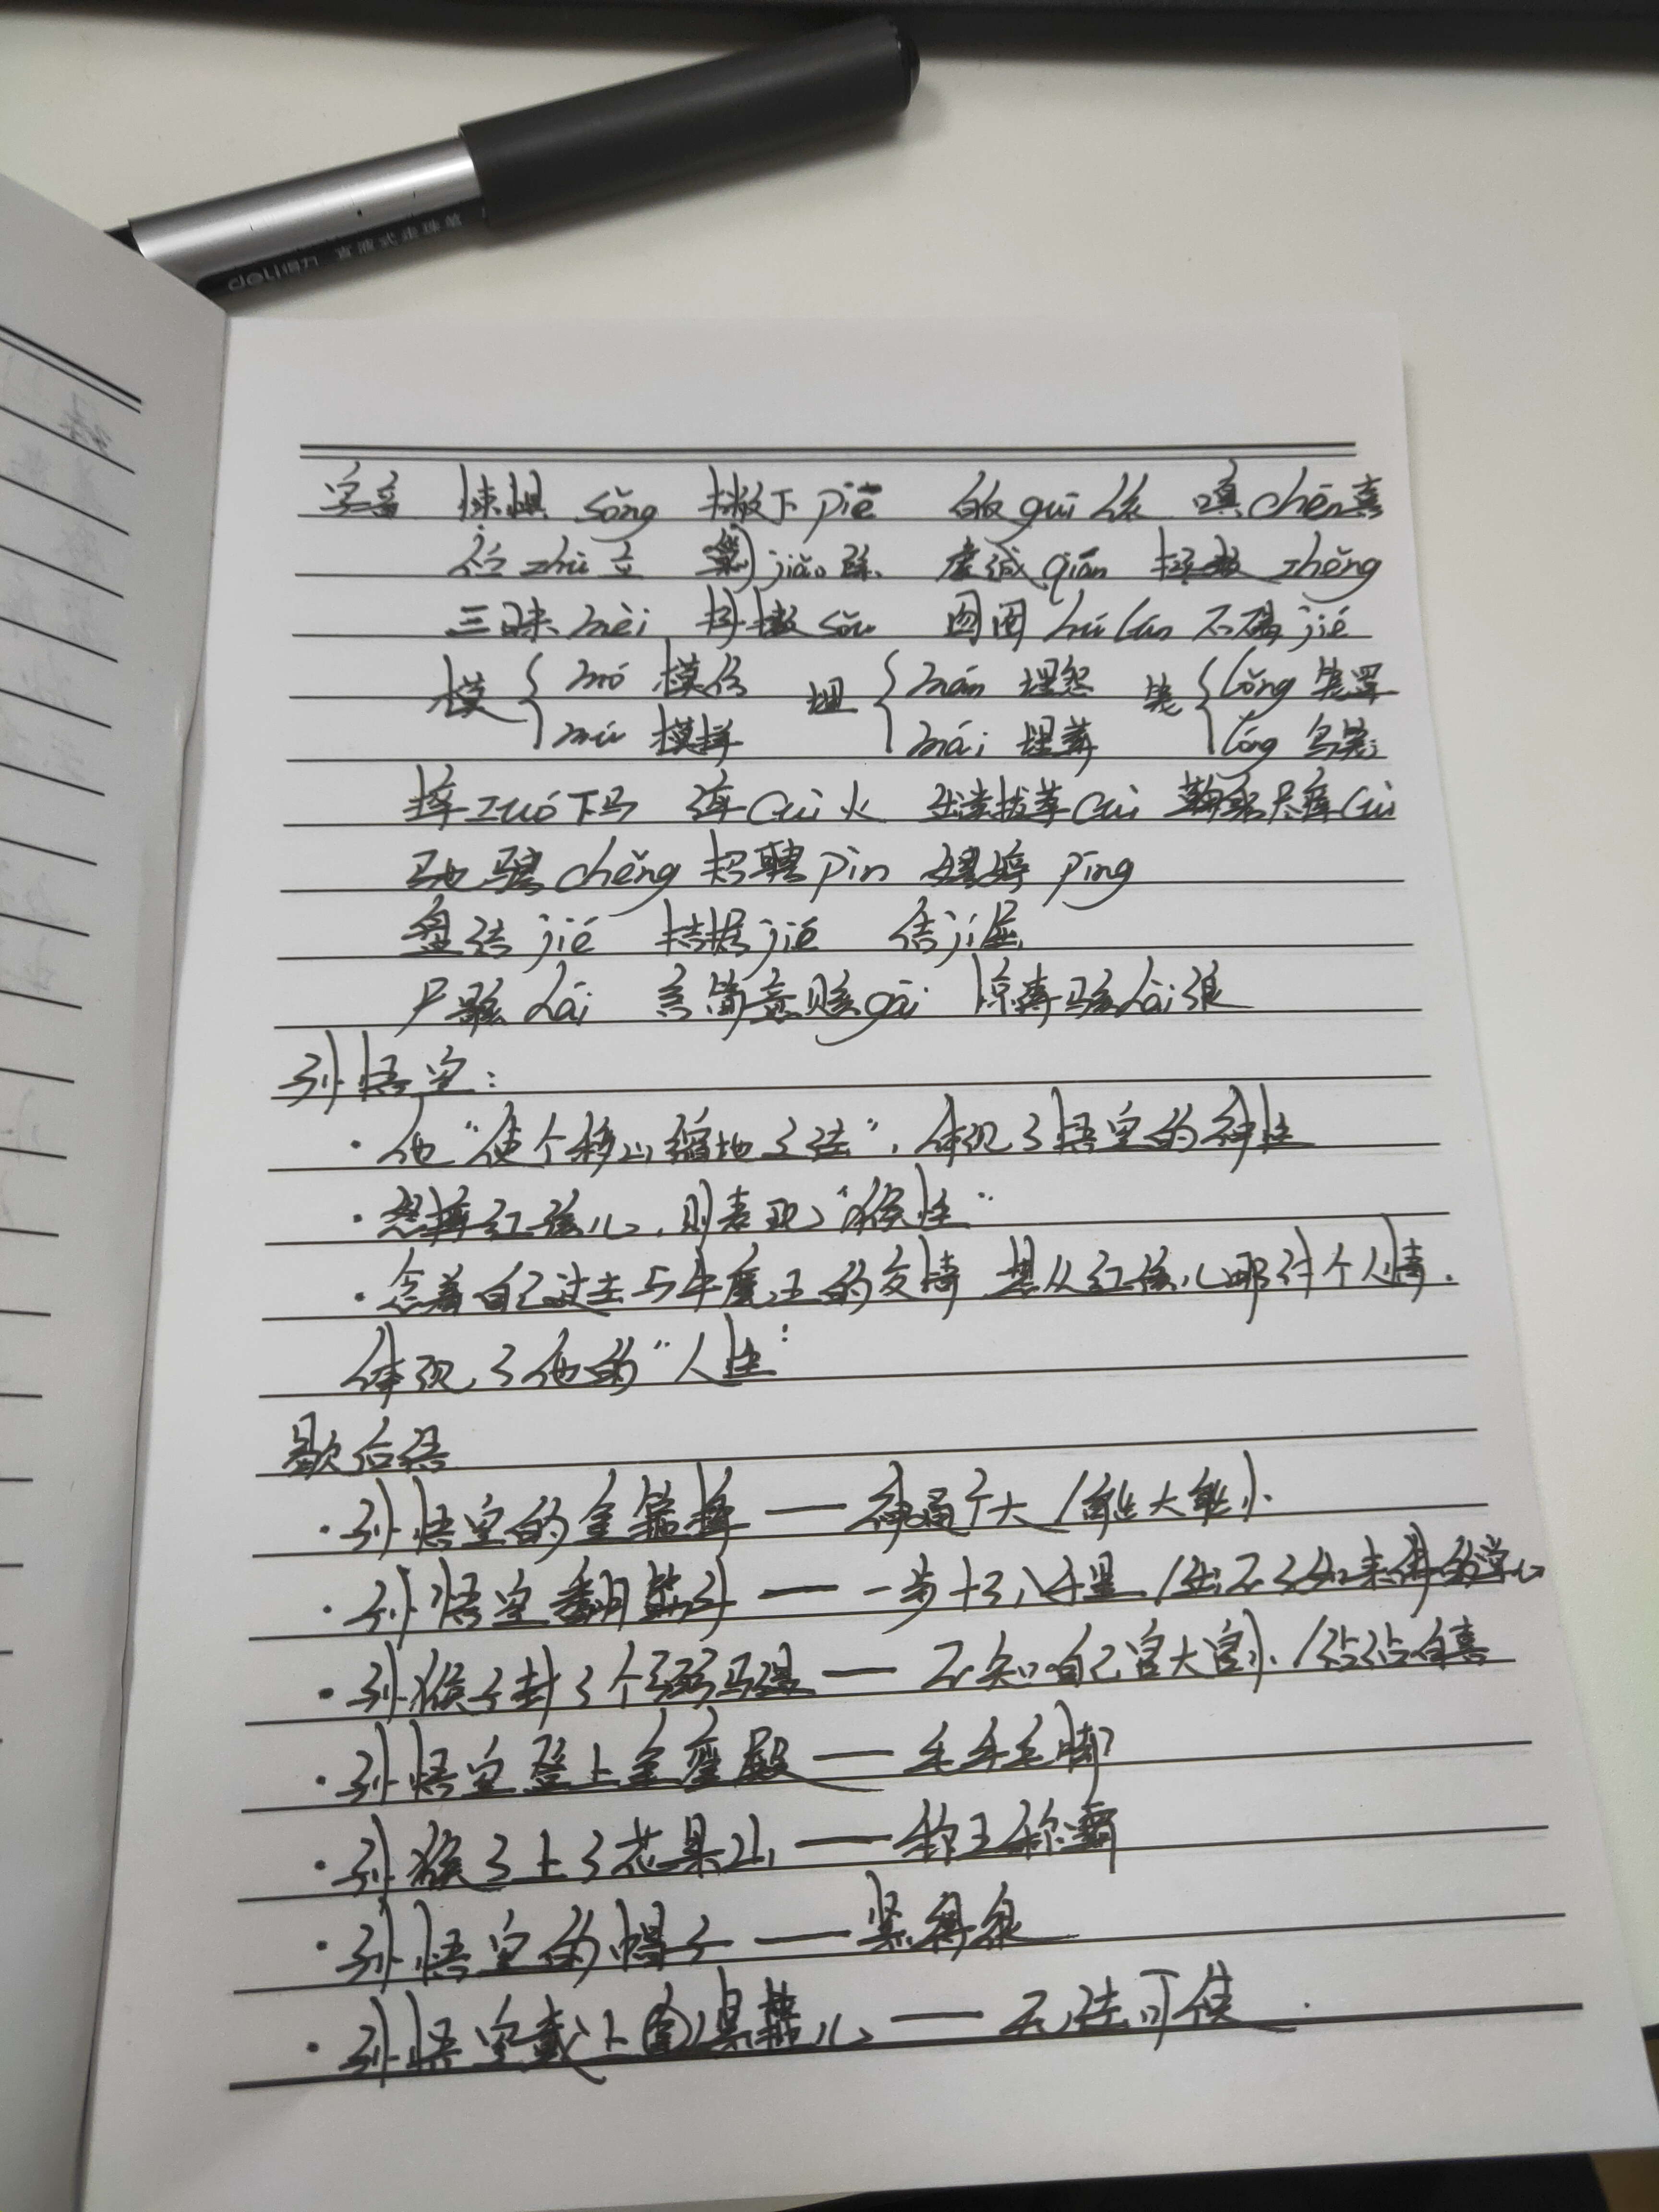 deli得力 直液式走珠笔
字音 悚惧 sǒng 撇下 piē 皈 guī 依 嗔 chēn 喜
伫 zhù 立 剿 jiǎo 除 虔诚 qián 拯救 zhěng
三昧 mèi 抖擞 sǒu 囫囵 hú lún 不碍
模 { mó 模仿 埋 { mán 埋怨 笼 { lǒng 笼罩
mú 模样 mái 埋葬 lóng 鸟笼
捽 zuó 下马 淬 cuì 火 出类拔萃 cuì 鞠躬尽瘁 cuì
驰骋 chěng 招聘 pìn 娉婷 pīng
盘结 jié 拮据 jié 佶 jí 屈
尸骸 hái 言简意赅 gāi 惊涛骇 hài 浪
孙悟空:
·他“使个移山缩地之法”,体现了悟空的神性
·怒摔红孩儿,则表现“猴性”
·念着自己过去与牛魔王的交情 想从红孩儿那讨个人情.
体现了他的“人性”
歇后语
·孙悟空的金箍棒——神通广大/能大能小
·孙悟空翻筋斗——一步十万八千里/出不了如来佛的掌心
·孙猴子封了个弼马温——不知自己官大官小/沾沾自喜
·孙悟空登上金銮殿——毛手毛脚
·孙猴子上了花果山——称王称霸
·孙悟空的帽子——紧得很
·孙悟空戴上紧箍儿——无法可使.